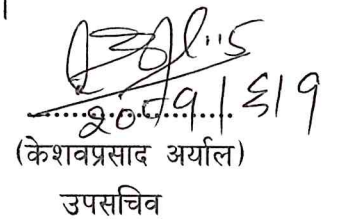 २०७९।६।९
(केशवप्रसाद अर्याल)
उपसचिव